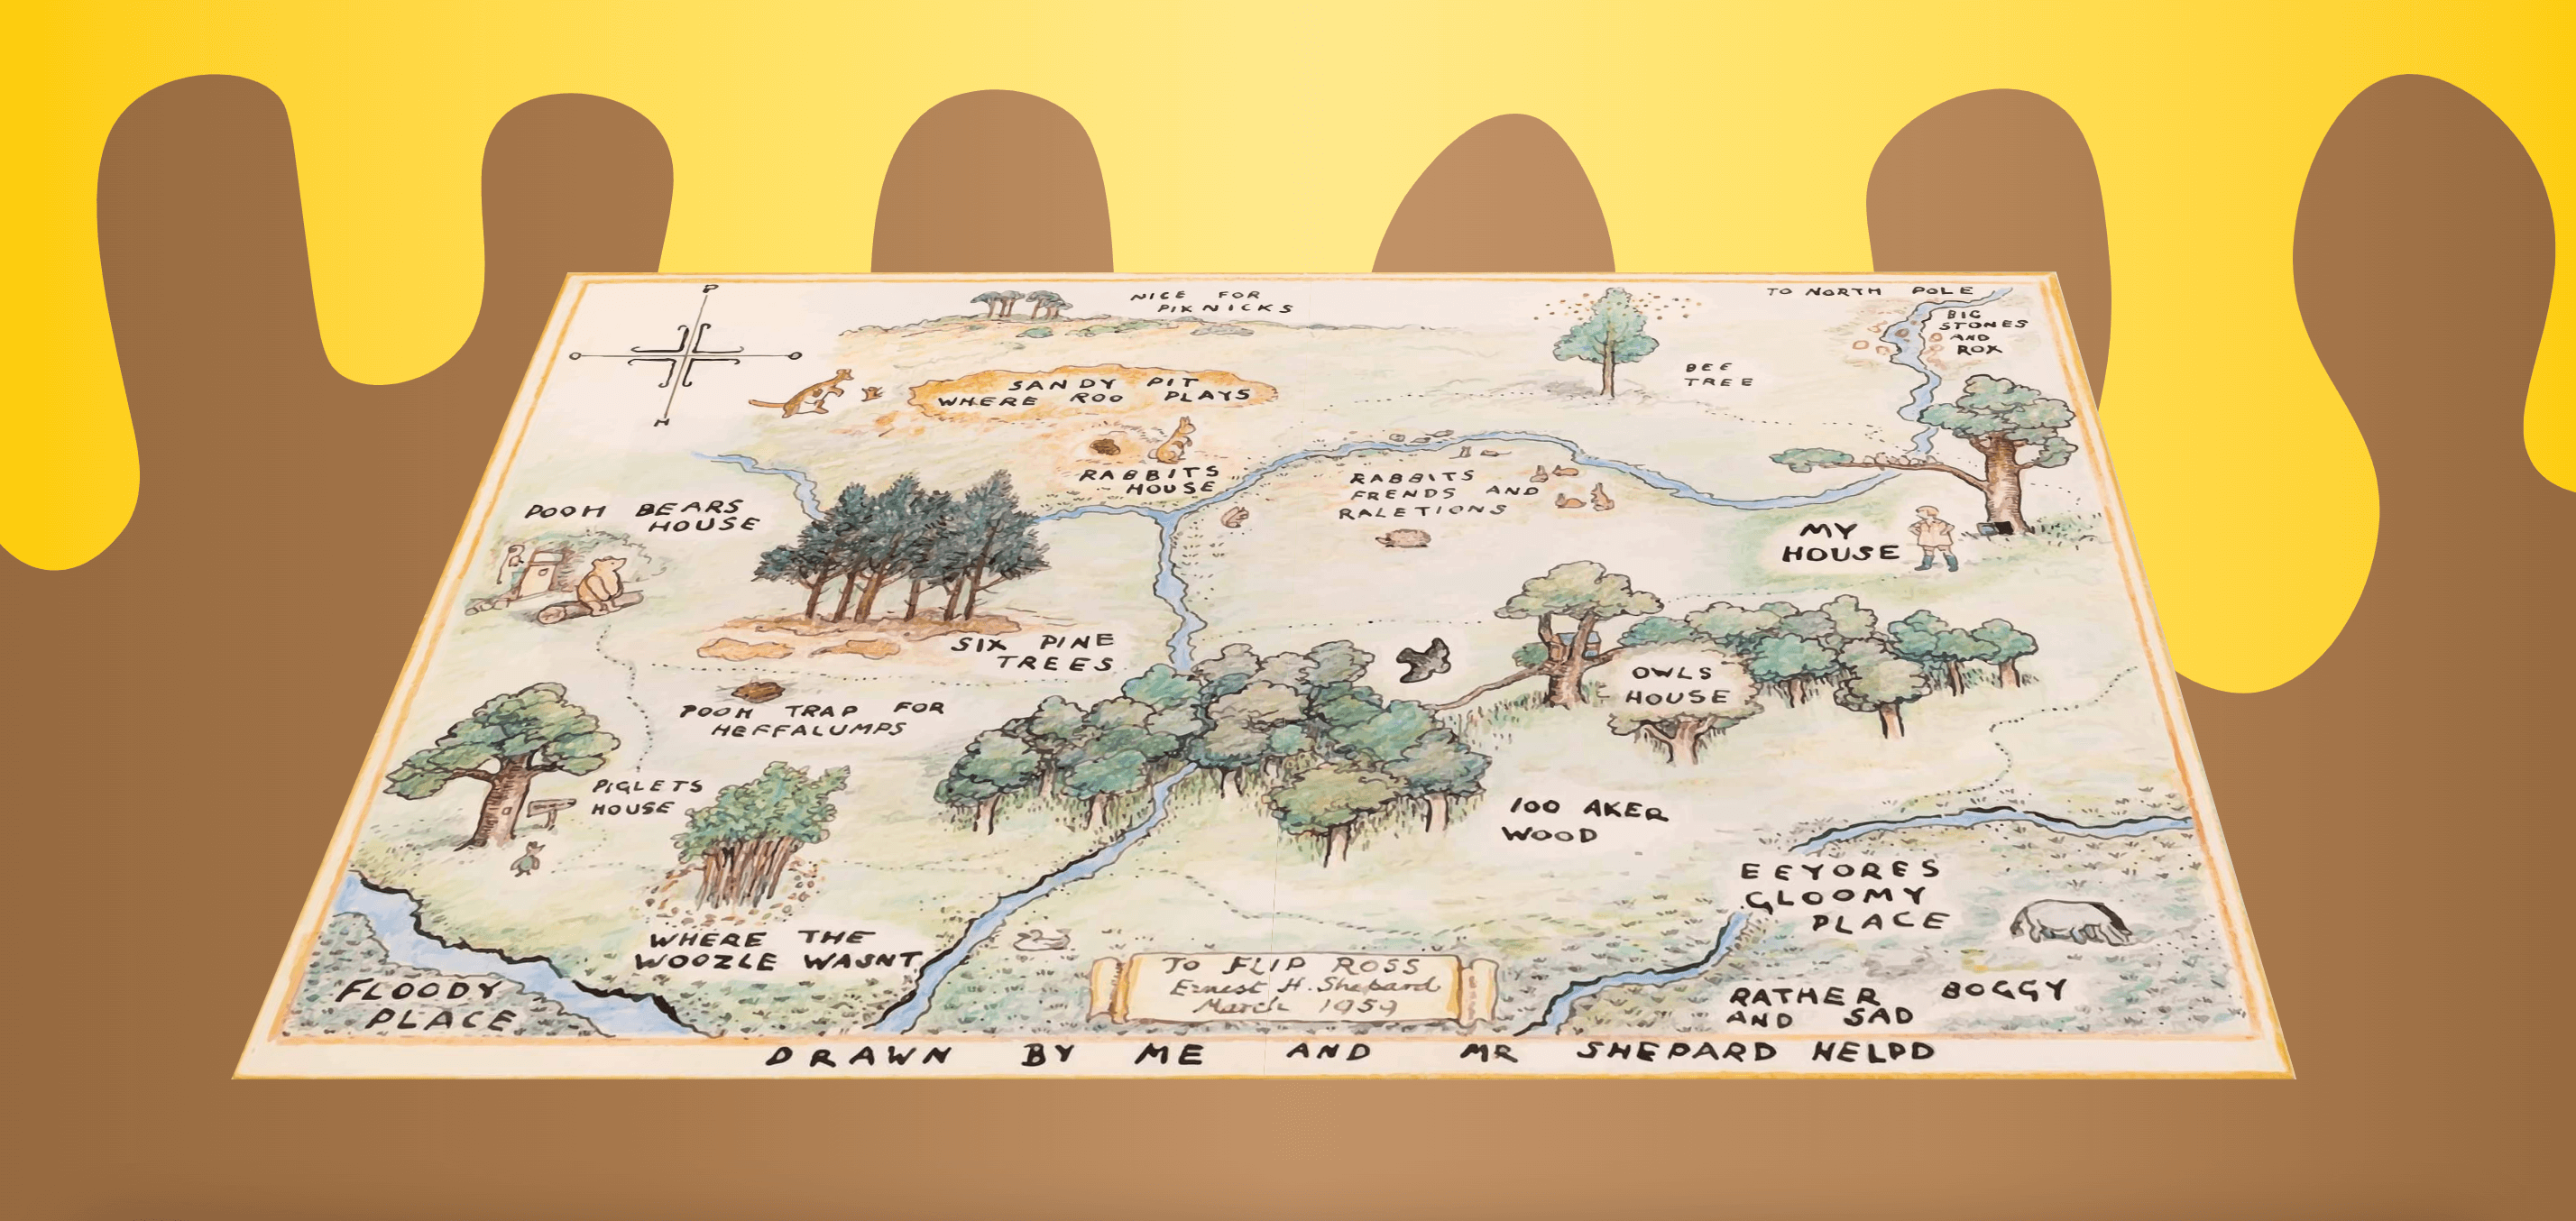 P
NICE FOR
PIKNICKS
TO NORTH POLE
BIG
STONES
AND
ROX
BEE
TREE
SANDY PIT
WHERE ROO PLAYS
H
RABBITS
HOUSE
RABBITS
FRENDS AND
RALETIONS
POOH BEARS
HOUSE
O
O
MY
HOUSE
SIX PINE
TREES
OWLS
HOUSE
POOH TRAP FOR
HEFFALUMPS
PIGLETS
HOUSE
100 AKER
WOOD
EEYORES
GLOOMY
PLACE
WHERE THE
WOOZLE WASNT
FLOODY
PLACE
TO FLIP ROSS
Ernest H. Shepard
March 1959
RATHER BOGGY
AND SAD
DRAWN BY ME AND MR SHEPARD HELPD